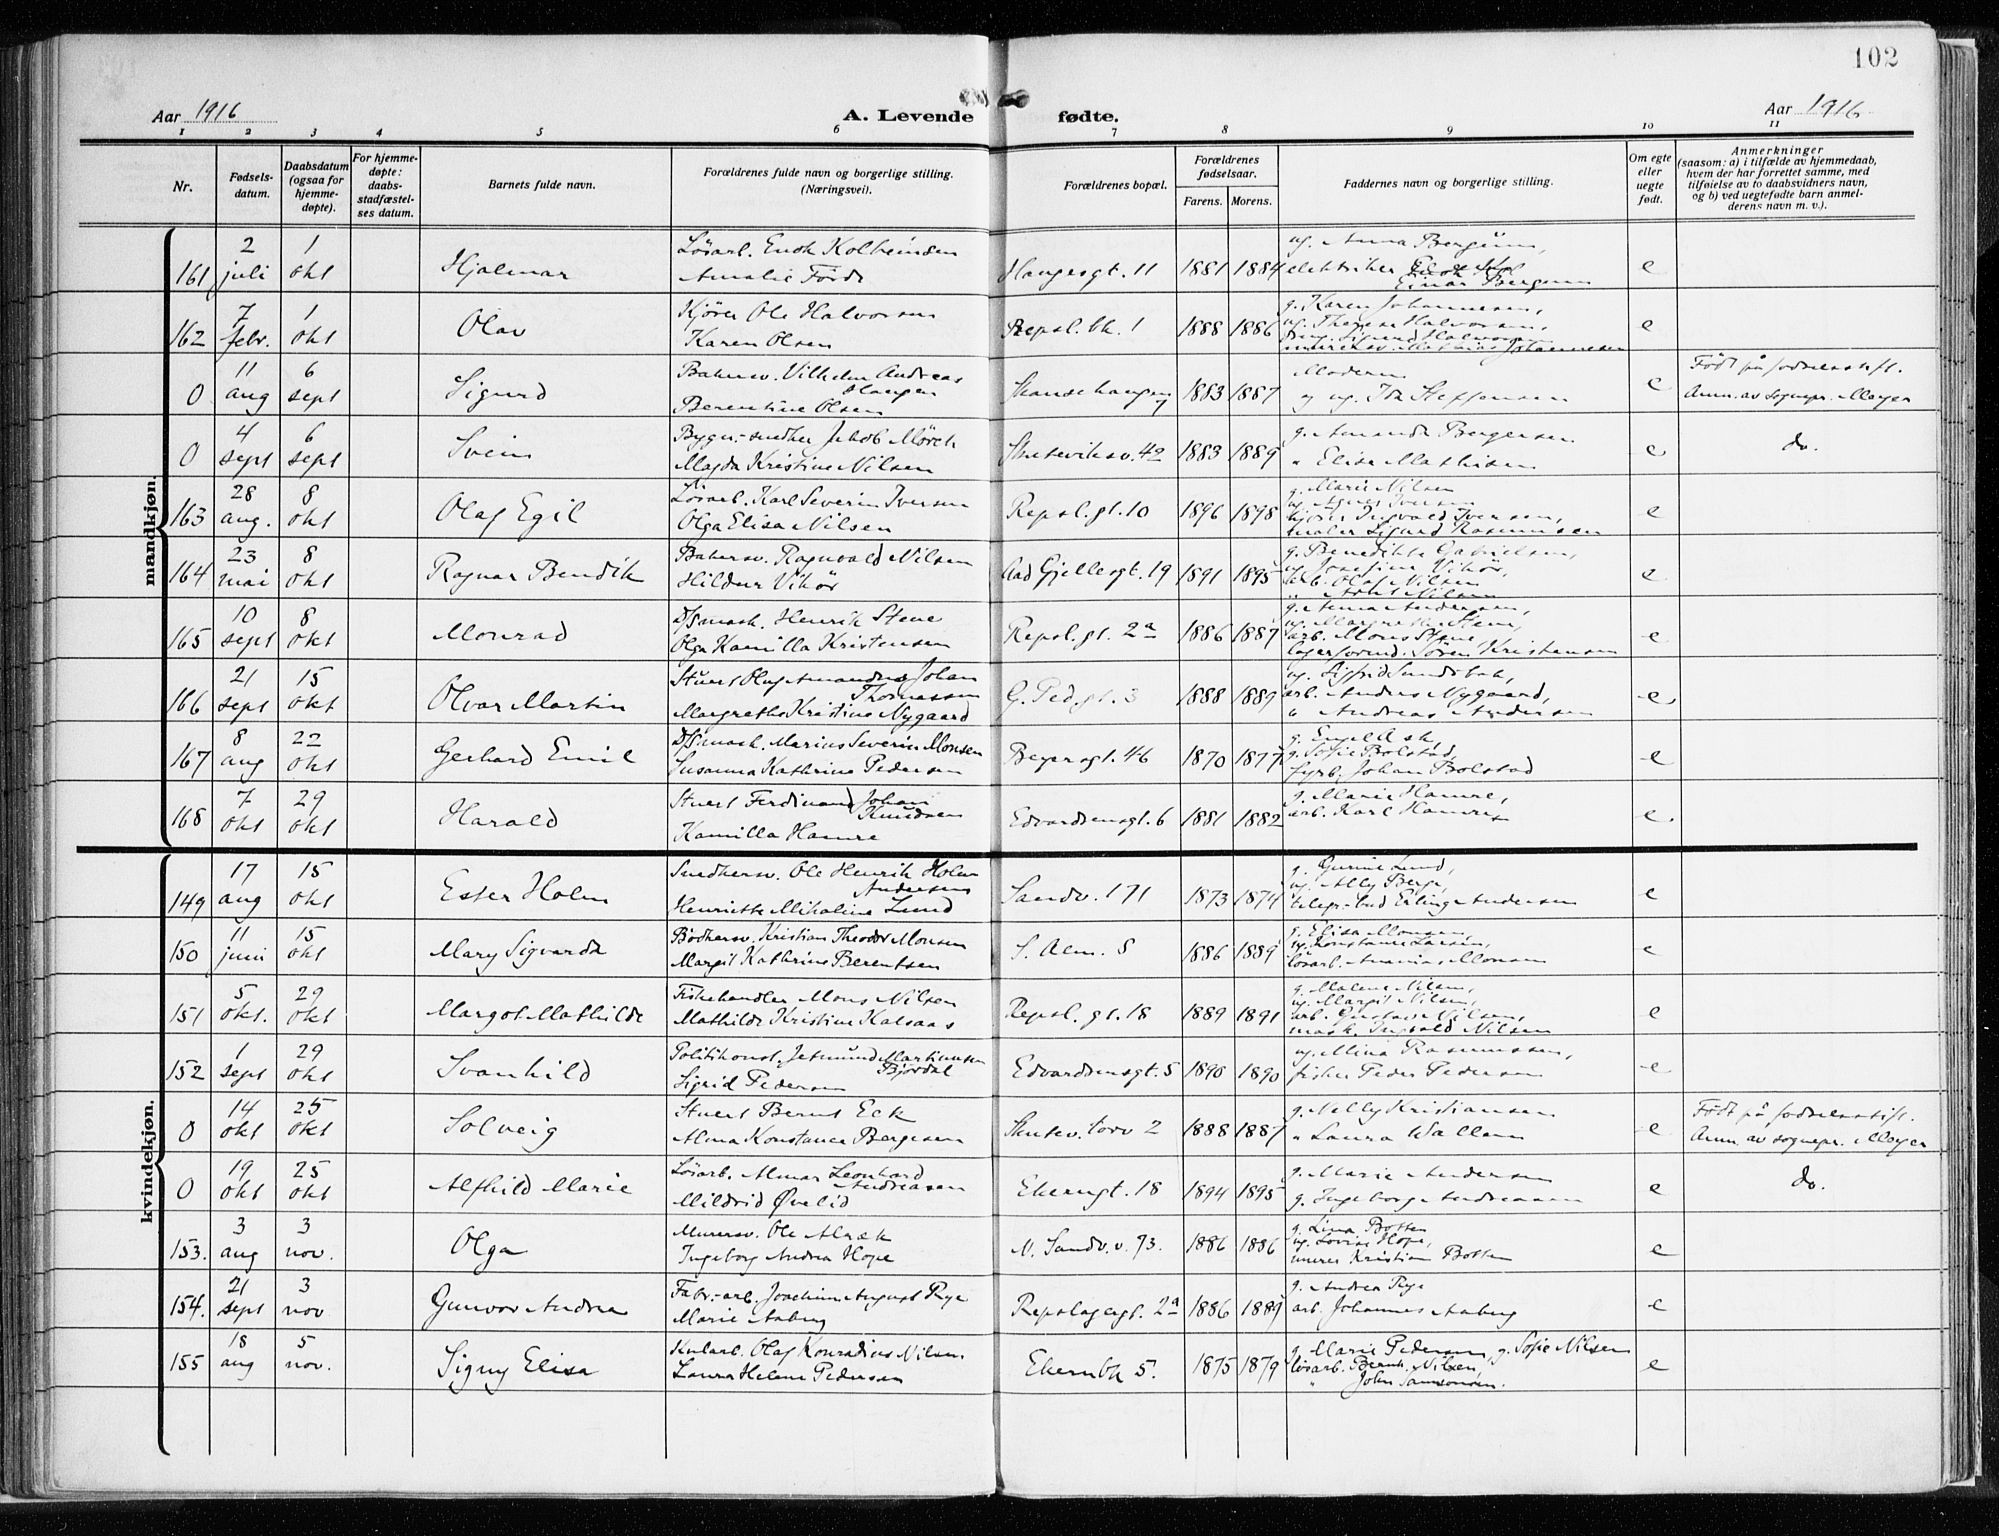 102
Aar 1916
A. Levende fødte.
Aar 1916
1 2 3 4 5 6 7 8 9 10 11
Nr.
Fødsels-
datum.
Daabsdatum
(ogsaa for
hjemme-
døpte).
For hjemme-
døpte:
daabs-
stadfæstel-
ses datum.
Barnets fulde navn.
Forældrenes fulde navn og borgerlige stilling.
(Næringsvei).
Forældrenes bopæl.
Forældrenes
fødselsaar.
Farens. Morens.
Faddernes navn og borgerlige stilling.
Om egte
eller
uegte
født.
Anmerkninger
(saasom: a) i tilfælde av hjemmedaab,
hvem der har forrettet samme, med
tilføielse av to daabsvidners navn,
og b) ved uegtefødte barn anmel-
derens navn m. v.).
mandkjøn.
161 2 juli 1 okt Hjalmar
Løsarb. Enok Kolbeinsen
Amalie Förde
Haugesgt. 11 1881 1884
ug. Anna Bergum,
elektriker
Einar Bergum
e
162 7 febr. 1 okt Olav
Kjörer Ole Halvorsen
Karen Olsen
Repsl.bk. 1 1888 1886
g. Karen Johannesen,
ug. Therese Halvorsen,
Sigurd Halvorsen
murersv. Mathias Johannesen
e
0 11 aug 6 sept Sigurd
Bakersv. Vilhelm Andreas
Haugen
Berentine Olsen
Skansehaugen 1883 1887
Moderen
og ug. Ida Steffensen
e
Födt på fødselsstift.
Anm. av sognepr. Meyer
0 4 sept 6 sept Svein
Bygn.-snedker Jakob Mörch
Magda Kristine Nilsen
Skuteviksv. 42 1883 1889
g. Amanda Bergersen
" Elise Mathisen
e
do.
163 28 aug. 8 okt Olaf Egil
Løsarb. Karl Severin Iversen
Olga Elisa Nilsen
Repsl.gt. 10 1896 1898
g. Marie Nilsen
ug. Agnes Iversen
kjörer Ingvald Iversen,
maler Sigurd Rasmussen
e
164 23 mai 8 okt Ragnar Bendik
Bakersv. Ragnvald Nilsen
Hildur Vikör
Aad Gjellesgt. 19 1891 1895
g. Benedikte Gabrielsen,
ug. Josefine Vikör,
arb. Olaf Nilsen
" Adolf Nilsen
e
165 10 sept 8 okt Monrad
D/Smask. Henrik Stene
Olga Kamilla Kristensen
Repsl.gt. 2a 1886 1887
g. Anna Andersen,
ug. Margrethe Stene,
arb. Mons Stene
lagerformd. Sören Kristensen
e
166 21 sept 15 okt Olvar Martin
Stuert Olaf Amandus Johan
Thomassen
Margrethe Kristine Nygaard
G. Ped.gt. 3 1888 1889
ug. Sigfrid Sundsbak,
arb. Anders Nygaard,
" Andreas Andersen
e
167 8 aug 22 okt Gerhard Emil
D/Smask. Marius Severin Monsen
Susanna Kathrine Pedersen
Beyersgt. 46 1870 1877
g. Engel Ask,
g. Sofie Bolstad,
fyrb. Johan Bolstad
e
168 7 okt 29 okt Harald
Stuert Ferdinand Johan
Knudsen
Kamilla Hamre
Edvardsensgt. 6 1881 1882
g. Marie Hamre,
arb. Karl Hamre
e.
kvindekjøn.
149 17 aug 15 okt Ester Holm
Snedkersv. Ole Henrik Holm
Andersen
Henriette Mikaline Lund
Sandv. 171 1873 1874
g. Gurine Lund,
ug. Ally Berge,
telegr.-bud Erling Andersen
e
150 11 juni 15 okt Mary Sigvarda
Bödkersv. Kristian Theodor Monsen
Margit Kathrine Berentsen
S. Alm. 8 1886 1889
g. Elisa Monsen,
ug. Konstanse Larsen,
løsarb. Ananias Monsen
e
151 5 okt. 29 okt Margot Mathilde
Fiskehandler Mons Nilsen
Mathilde Kristine Kalsaas
Repsl.gt. 18 1889 1891
g. Malene Nilsen,
ug. Margit Nilsen,
arb. Gustav Nilsen,
mask. Ingvald Nilsen
e
152 1 sept 29 okt Svanhild
Politikonst. Jetmund Martinusen
Björdal
Sigrid Pedersen
Edvardsensgt. 5 1890 1890
ug. Mina Rasmussen,
fisker Peder Pedersen
e
0 14 okt 25 okt Solveig
Stuert Bernt Eck
Alma Konstance Bergesen
Skutev. torv 2 1888 1887
g. Nelly Kristiansen
" Laura Wallem
e
Födt på fødselsstift.
Anm. av sognepr. Meyer
0 19 okt 25 okt Alfhild Marie
Løsarb. Almar Leonhard
Andreasen
Mildrid Øvelid
Ekerngt. 18 1894 1895
g. Marie Andersen
g. Ingeborg Andreasen
e
do.
153. 3 aug 3 nov. Olga
Murersv. Ole Alræk
Ingeborg Andrea Hope
N. Sandv.v. 73. 1886 1886
g. Lina Botten
ug. Lovise Hope,
murer Kristian Botten
e
154. 21 sept 3 nov Gunvor Andrea
Fabr.-arb. Joachim August Rye
Marie Aaberg
Repslagergt. 2a 1886 1889
g. Andrea Rye
arb. Johannes Aaberg
e
155 18 aug 5 nov. Signy Elisa
Kularb. Olaf Konradius Nilsen
Laura Helene Pedersen
Ekernbk 5. 1875 1879
g. Marie Pedersen, g. Sofie Nilsen
løsarb. Bernh. Nilsen,
" John Samsonsen.
e